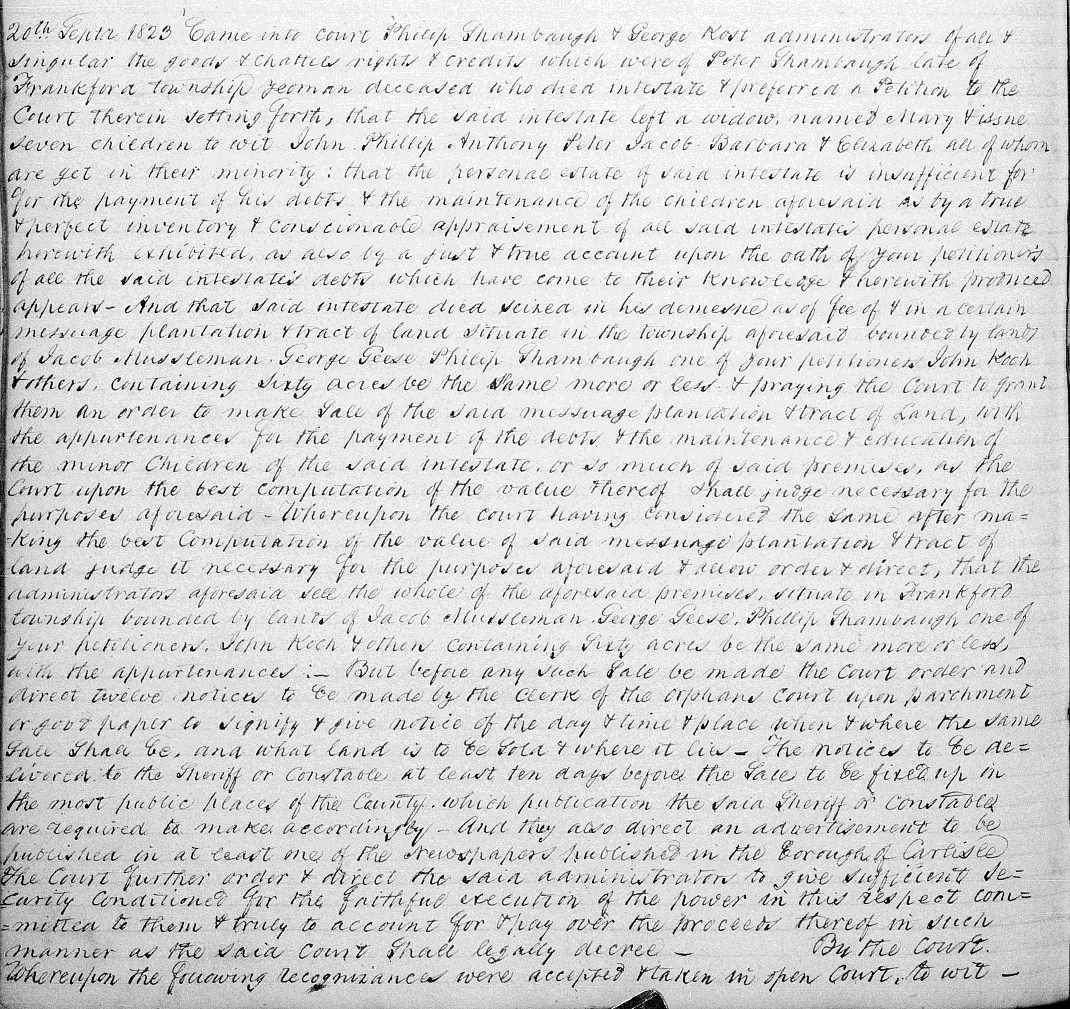 20th Septr 1823 Came into court Philip Shambaugh & George Kost administrators of all &
singular the goods & chattels rights & credits which were of Peter Shambaugh late of
Frankford township yeoman deceased who died intestate & preferred a Petition to the
Court therein setting forth, that the said intestate left a widow, named Mary & issue
seven children to wit John Phillip Anthony Peter Jacob Barbara & Elizabeth all of whom
are yet in their minority: that the personal estate of said intestate is insufficient for
for the payment of his debts & the maintenance of the children aforesaid as by a true
& perfect inventory & conscionable appraisement of all said intestate's personal estate
herewith exhibited, as also by a just & true account upon the oath of your petitioner's
of all the said intestate's debts which have come to their knowledge & herewith produced
appears - And that said intestate died seized in his demesne as of fee of & in a certain
messuage plantation & tract of land situate in the township aforesaid bounded by lands
of Jacob Mussleman. George Geese Philip Shambaugh one of your petitioners John Koch
& others, containing Sixty acres be the same more or less. & praying the Court to grant
them an order to make sale of the said messuage plantation & tract of Land, with
the appurtenances for the payment of the debts & the maintenance & education of
the minor Children of the said intestate, or so much of said premises, as the
Court upon the best computation of the value thereof shall judge necessary for the
purposes aforesaid - Whereupon the court having considered the same after ma=
=king the best Computation of the value of said messuage plantation & tract of
land judge it necessary for the purposes aforesaid & allow order & direct, that the
administrators aforesaid sell the whole of the aforesaid premises, situate in Frankford
township bounded by lands of Jacob Mussleman. George Geese. Phillip Shambaugh one of
your petitioners. John Koch & others containing Sixty acres be the same more or less,
with the appurtenances :- But before any such Sale be made the Court order and
direct twelve notices to be made by the Clerk of the Orphans Court upon parchment
or good paper to signify & give notice of the day & time & place when & where the same
Sale Shall be, and what land is to be sold & where it lies - The notices to be de=
livered to the Sheriff or Constable at least ten days before the Sale to be fixed up in
the most public places of the County. which publication the said Sheriff or Constable
are required to make accordingly - And they also direct an advertisement to be
published in at least one of the Newspapers published in the Borough of Carlisle
the Court further order & direct the said administrators to give sufficient Se=
curity Conditioned for the faithful execution of the power in this respect com=
=mitted to them & truly to account for & pay over the proceeds thereof in such
manner as the said Court Shall legally decree - By the Court.
Whereupon the following recognizances were accepted & taken in open Court, to wit -